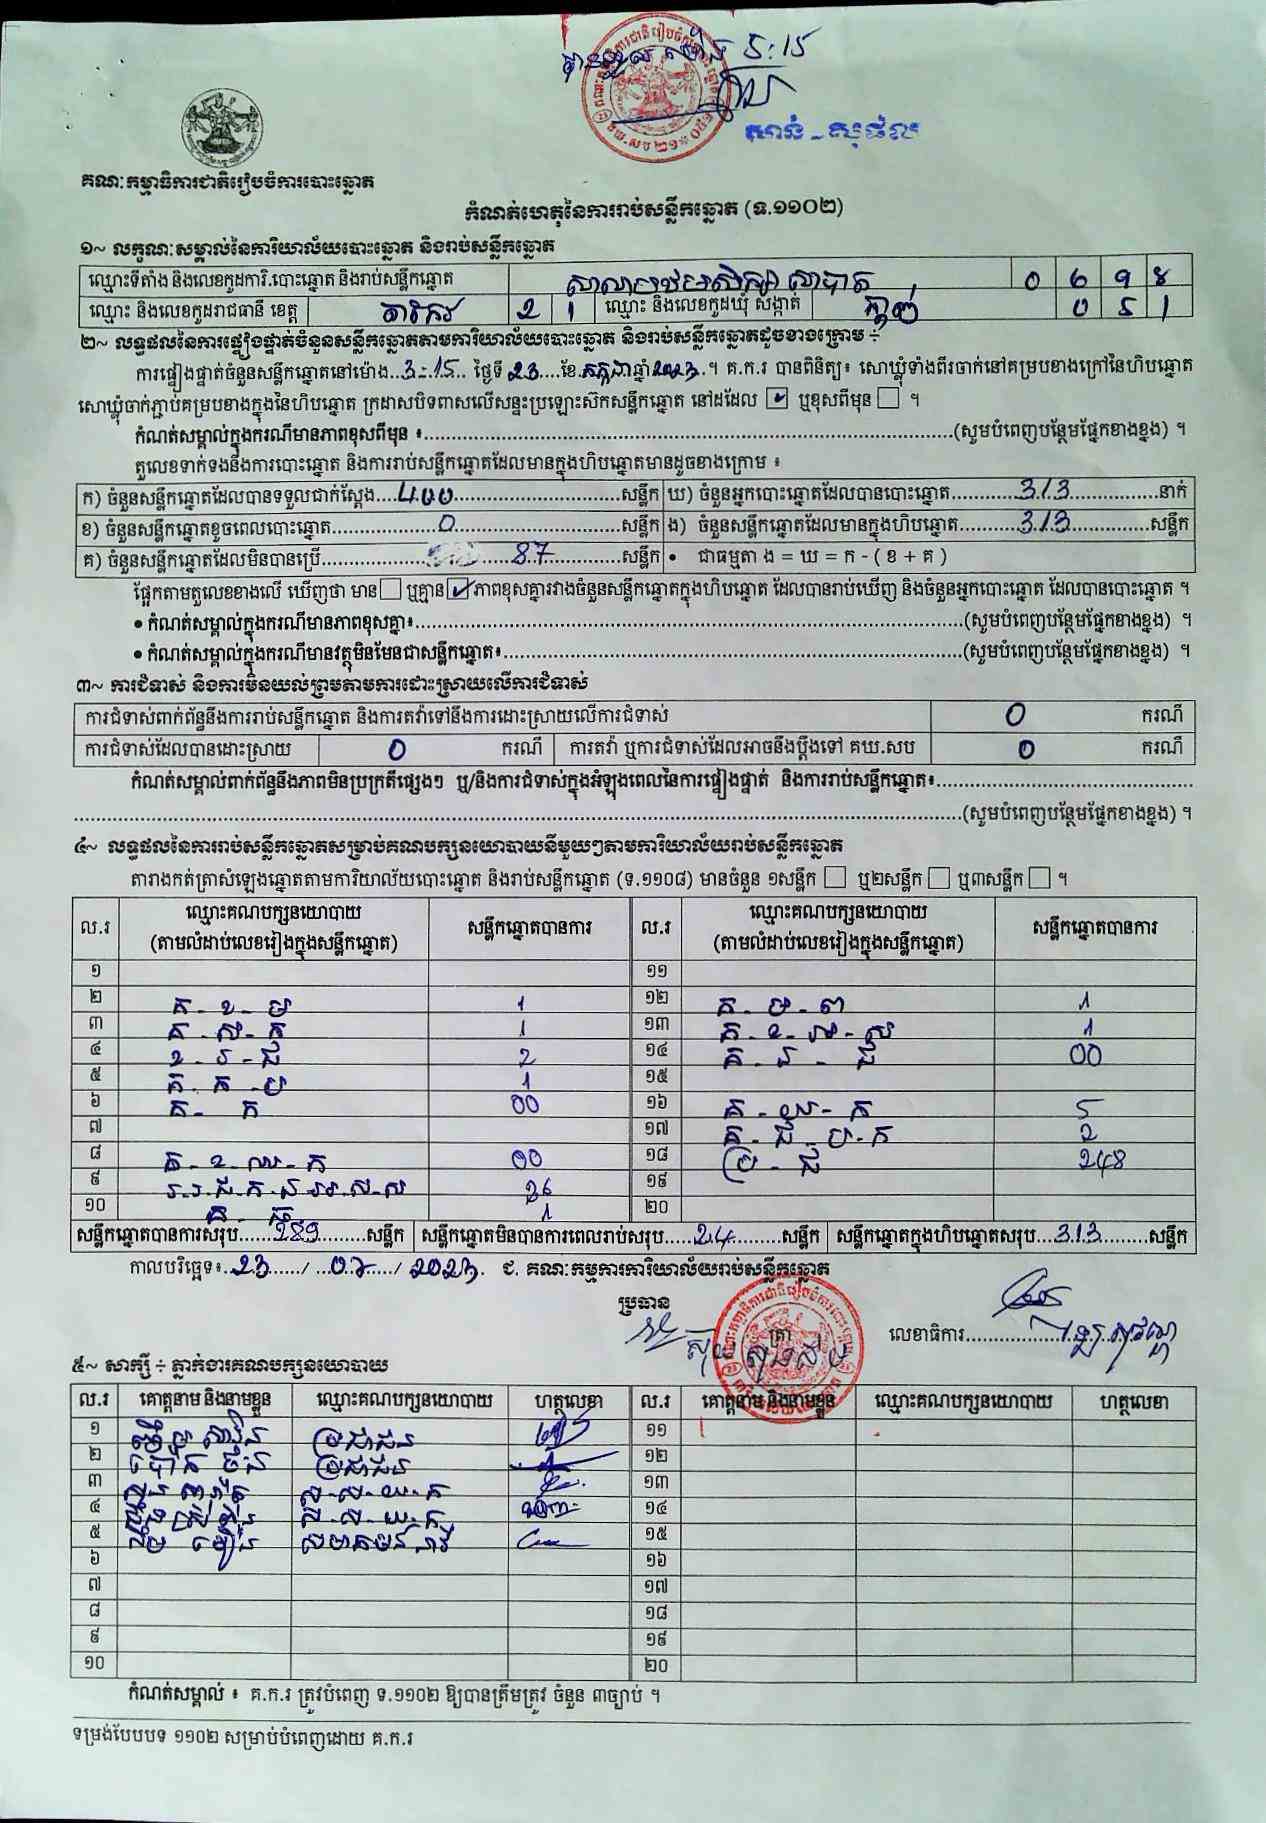 បានទទួល ម៉ោង 5:15
សាន់ - សុផល
គណៈកម្មាធិការជាតិរៀបចំការបោះឆ្នោត
កំណត់ហេតុនៃការរាប់សន្លឹកឆ្នោត (ទ.១១០២)
១~ លក្ខណៈសម្គាល់នៃការិយាល័យបោះឆ្នោត និងរាប់សន្លឹកឆ្នោត
ឈ្មោះទីតាំង និងលេខកូដការិ.បោះឆ្នោត និងរាប់សន្លឹកឆ្នោត សាលាបឋមសិក្សា 0 6 9 8
ឈ្មោះ និងលេខកូដរាជធានី ខេត្ត តាកែវ 2 1 ឈ្មោះ និងលេខកូដឃុំ សង្កាត់ 0 5 1
២~ លទ្ធផលនៃការផ្ទៀងផ្ទាត់ចំនួនសន្លឹកឆ្នោតតាមការិយាល័យបោះឆ្នោត និងរាប់សន្លឹកឆ្នោតដូចខាងក្រោម ÷
ការផ្ទៀងផ្ទាត់ចំនួនសន្លឹកឆ្នោតនៅម៉ោង..3-15.. ថ្ងៃទី 23....ខែ.កក្កដា.ឆ្នាំ2023..។ គ.ក.រ បានពិនិត្យ៖ សោឃ្លុំទាំងពីរចាក់នៅគម្របខាងក្រៅនៃហិបឆ្នោត
សោឃ្លុំចាក់ភ្ជាប់គម្របខាងក្នុងនៃហិបឆ្នោត ក្រដាសបិទពាសលើសន្ទះប្រឡោះស៊កសន្លឹកឆ្នោត នៅដដែល ☑ ឬខុសពីមុន ☐ ។
កំណត់សម្គាល់ក្នុងករណីមានភាពខុសពីមុន ៖........(សូមបំពេញបន្ថែមផ្នែកខាងខ្នង) ។
តួលេខទាក់ទងនឹងការបោះឆ្នោត និងការរាប់សន្លឹកឆ្នោតដែលមានក្នុងហិបឆ្នោតមានដូចខាងក្រោម ៖
ក) ចំនួនសន្លឹកឆ្នោតដែលបានទទួលជាក់ស្តែង....400........សន្លឹក ឃ) ចំនួនអ្នកបោះឆ្នោតដែលបានបោះឆ្នោត........313........នាក់
ខ) ចំនួនសន្លឹកឆ្នោតខូចពេលបោះឆ្នោត........0........សន្លឹក ង) ចំនួនសន្លឹកឆ្នោតដែលមានក្នុងហិបឆ្នោត........313........សន្លឹក
គ) ចំនួនសន្លឹកឆ្នោតដែលមិនបានប្រើ........87........សន្លឹក • ជាធម្មតា ង = ឃ = ក - ( ខ + គ )
ផ្អែកតាមតួលេខខាងលើ ឃើញថា មាន ☐ ឬគ្មាន ☑ ភាពខុសគ្នារវាងចំនួនសន្លឹកឆ្នោតក្នុងហិបឆ្នោត ដែលបានរាប់ឃើញ និងចំនួនអ្នកបោះឆ្នោត ដែលបានបោះឆ្នោត ។
• កំណត់សម្គាល់ក្នុងករណីមានភាពខុសគ្នា៖........(សូមបំពេញបន្ថែមផ្នែកខាងខ្នង) ។
• កំណត់សម្គាល់ក្នុងករណីមានវត្ថុមិនមែនជាសន្លឹកឆ្នោត៖........(សូមបំពេញបន្ថែមផ្នែកខាងខ្នង) ។
៣~ ការជំទាស់ និងការមិនយល់ព្រមតាមការដោះស្រាយលើការជំទាស់
ការជំទាស់ពាក់ព័ន្ធនឹងការរាប់សន្លឹកឆ្នោត និងការតវ៉ាទៅនឹងការដោះស្រាយលើការជំទាស់ 0 ករណី
ការជំទាស់ដែលបានដោះស្រាយ 0 ករណី ការតវ៉ា ឬការជំទាស់ដែលអាចនឹងប្តឹងទៅ គឃ.សប 0 ករណី
កំណត់សម្គាល់ពាក់ព័ន្ធនឹងភាពមិនប្រក្រតីផ្សេងៗ ឬ/និងការជំទាស់ក្នុងអំឡុងពេលនៃការផ្ទៀងផ្ទាត់ និងការរាប់សន្លឹកឆ្នោត៖........
........(សូមបំពេញបន្ថែមផ្នែកខាងខ្នង) ។
៤~ លទ្ធផលនៃការរាប់សន្លឹកឆ្នោតសម្រាប់គណបក្សនយោបាយនីមួយៗតាមការិយាល័យរាប់សន្លឹកឆ្នោត
តារាងកត់ត្រាសំឡេងឆ្នោតតាមការិយាល័យបោះឆ្នោត និងរាប់សន្លឹកឆ្នោត (ទ.១១០៨) មានចំនួន ១សន្លឹក ☐ ឬ២សន្លឹក ☐ ឬ៣សន្លឹក ☐ ។
ល.រ ឈ្មោះគណបក្សនយោបាយ (តាមលំដាប់លេខរៀងក្នុងសន្លឹកឆ្នោត) សន្លឹកឆ្នោតបានការ ល.រ ឈ្មោះគណបក្សនយោបាយ (តាមលំដាប់លេខរៀងក្នុងសន្លឹកឆ្នោត) សន្លឹកឆ្នោតបានការ
១ ១១
២ គ - ខ - ម 1 ១២ គ - ម - ព 1
៣ គ - ស - ក 1 ១៣ 1
៤ ខ - រ - ជ 2 ១៤ 00
៥ គ - ក - ម 1 ១៥
៦ គ - ក 00 ១៦ គ - យ - ក 5
៧ ១៧ គ - ជ - ប - ក 2
៨ 00 ១៨ ប្រ - ជ 248
៩ 26 ១៩
១០ 1 ២០
សន្លឹកឆ្នោតបានការសរុប......289........សន្លឹក សន្លឹកឆ្នោតមិនបានការពេលរាប់សរុប.....24........សន្លឹក សន្លឹកឆ្នោតក្នុងហិបឆ្នោតសរុប...313........សន្លឹក
កាលបរិច្ឆេទ៖..23....../ ...07...../ 2023. ជ. គណៈកម្មការការិយាល័យរាប់សន្លឹកឆ្នោត
ប្រធាន
ត្រា លេខាធិការ........
៥~ សាក្សី ÷ ភ្នាក់ងារគណបក្សនយោបាយ
ល.រ គោត្តនាម និងនាមខ្លួន ឈ្មោះគណបក្សនយោបាយ ហត្ថលេខា ល.រ គោត្តនាម និងនាមខ្លួន ឈ្មោះគណបក្សនយោបាយ ហត្ថលេខា
១ ប្រជាជន ១១
២ ប្រជាជន ១២
៣ ១៣
៤ ១៤
៥ ១៥
៦ ១៦
៧ ១៧
៨ ១៨
៩ ១៩
១០ ២០
កំណត់សម្គាល់ ៖ គ.ក.រ ត្រូវបំពេញ ទ.១១០២ ឱ្យបានត្រឹមត្រូវ ចំនួន ៣ច្បាប់ ។
ទម្រង់បែបបទ ១១០២ សម្រាប់បំពេញដោយ គ.ក.រ